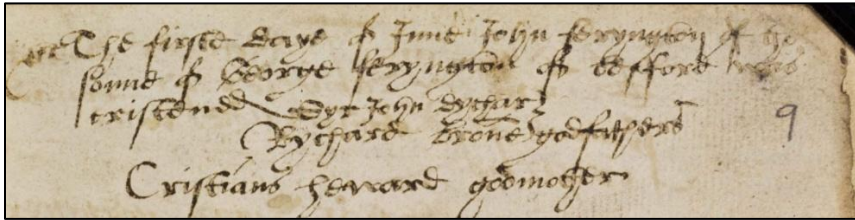 The firste daye of June John feryngton of the
sonne of George feryngton of was
cristened Syr John
Rychard godfathers
9
Cristians heward godmother